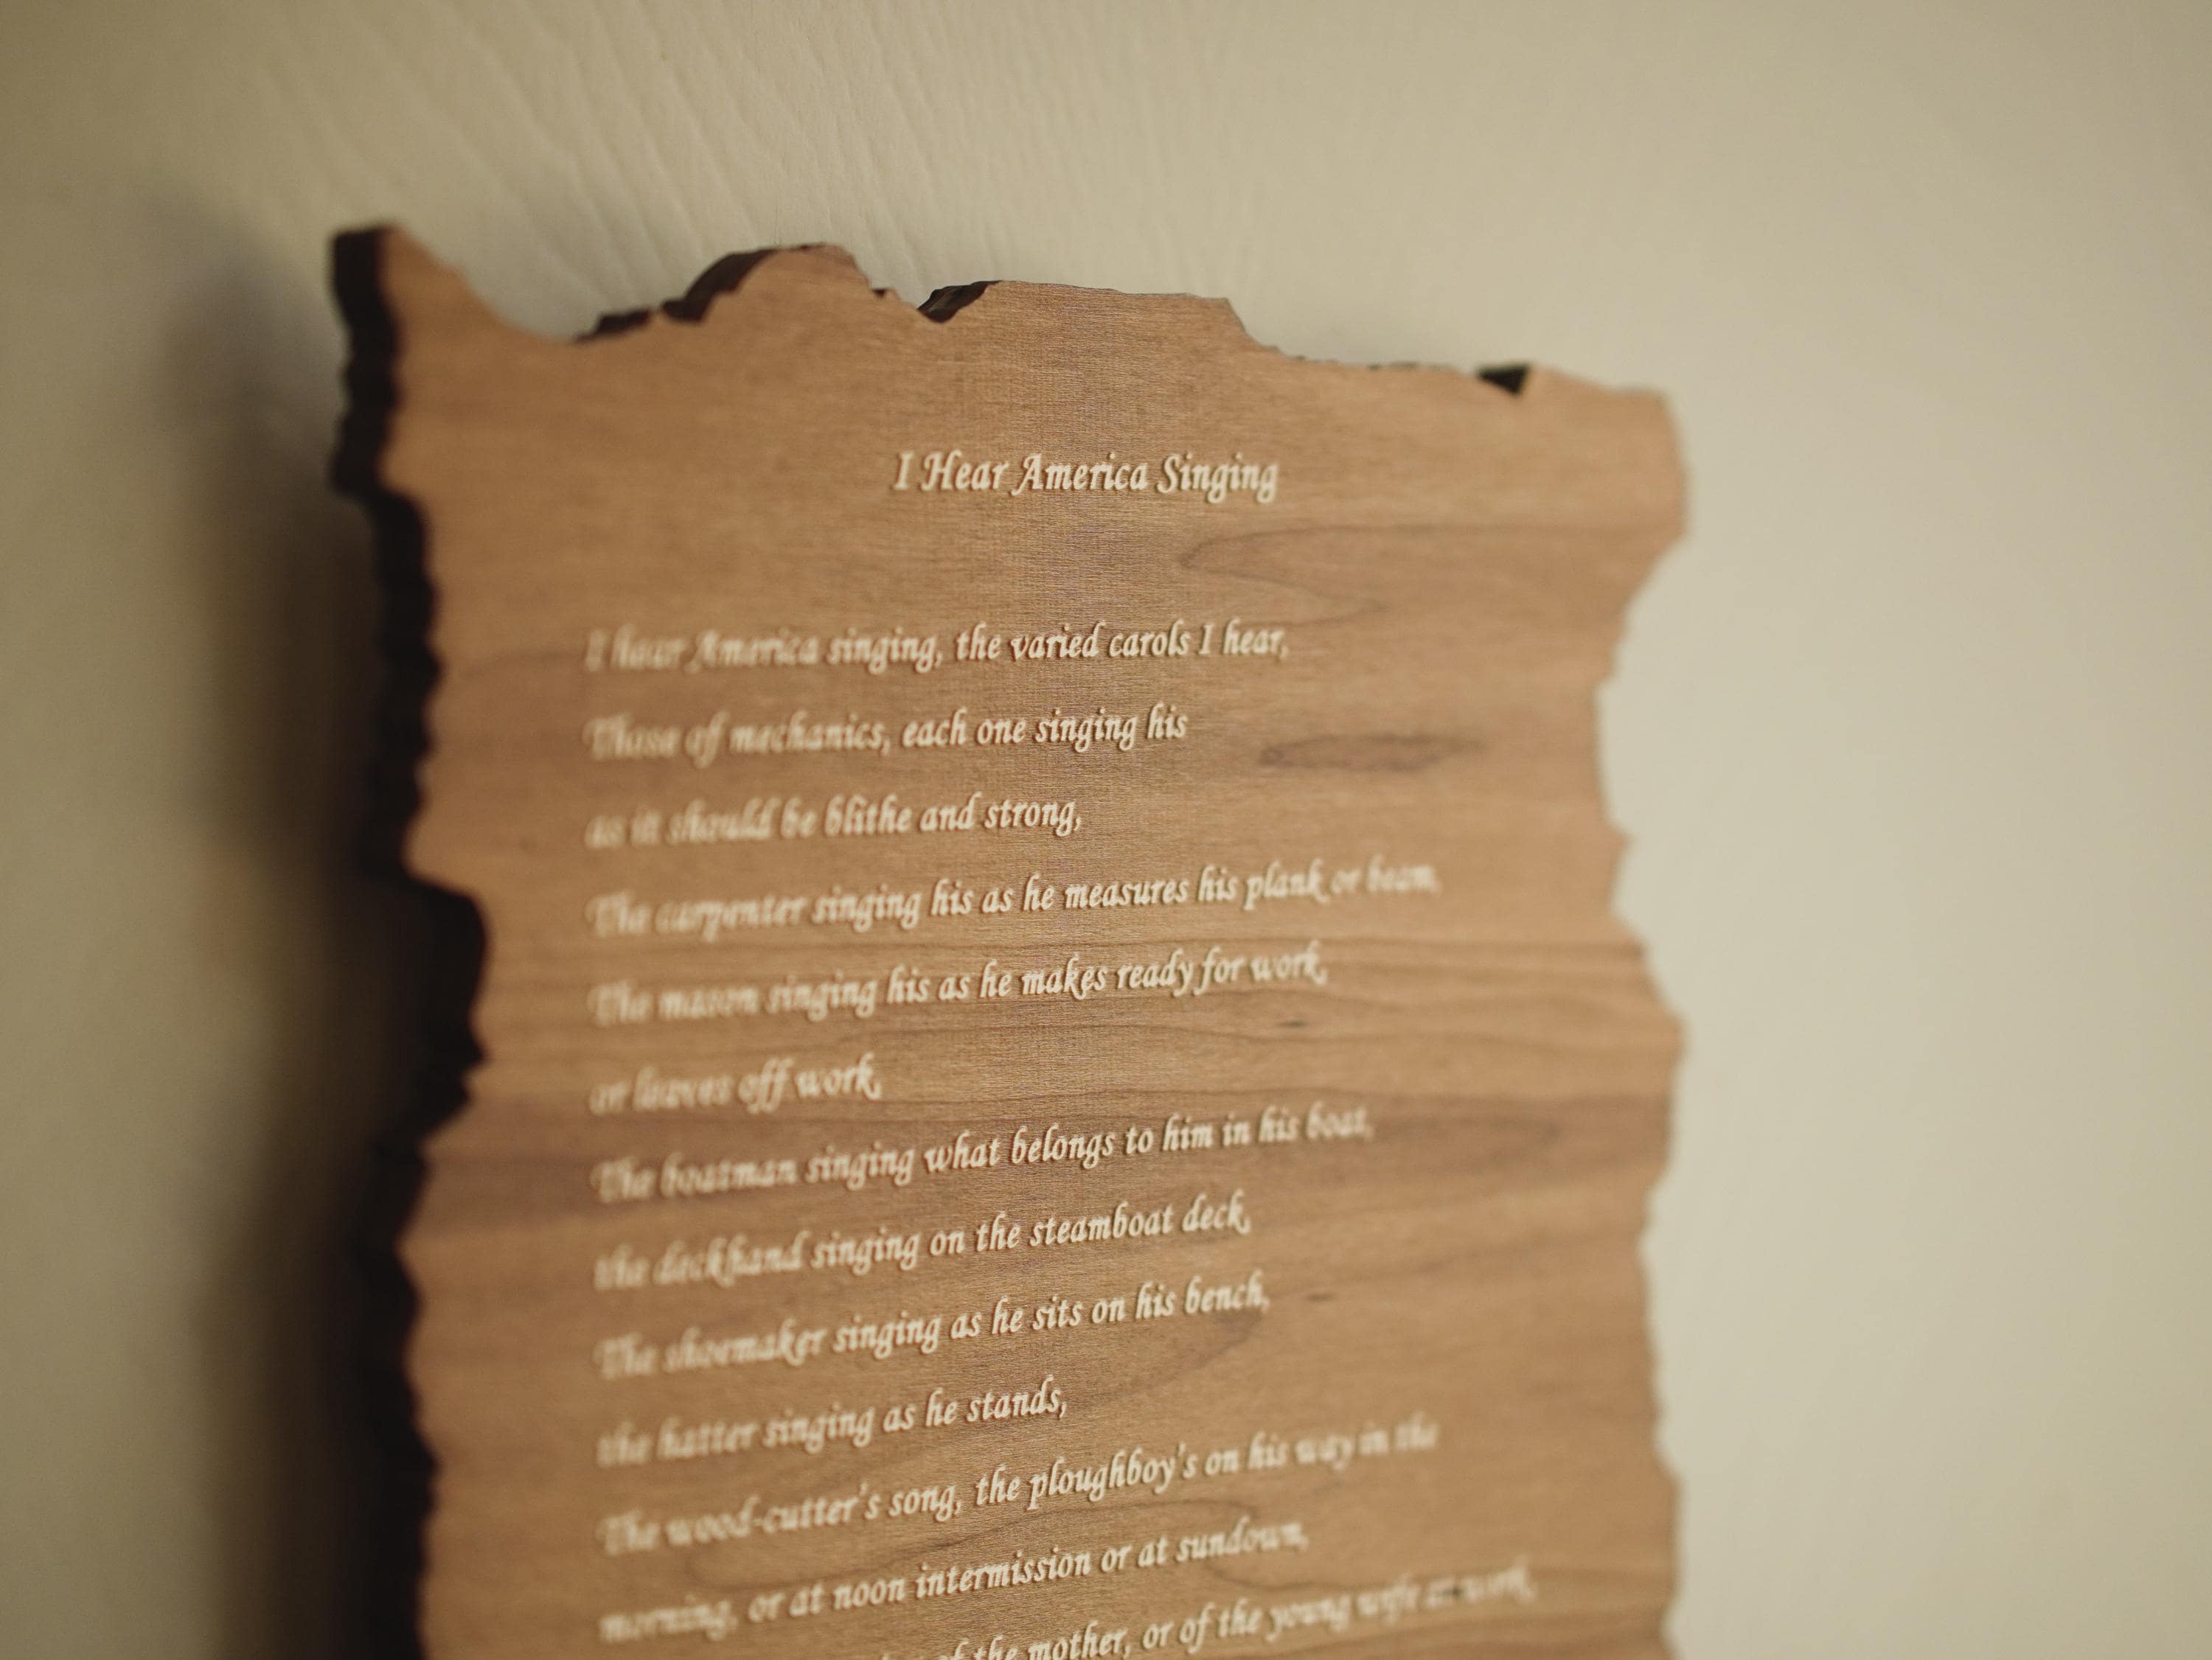 I Hear America Singing
I hear America singing, the varied carols I hear,
Those of mechanics, each one singing his
as it should be blithe and strong,
The carpenter singing his as he measures his plank or beam,
The mason singing his as he makes ready for work,
or leaves off work,
The boatman singing what belongs to him in his boat,
the deckhand singing on the steamboat deck,
The shoemaker singing as he sits on his bench,
the hatter singing as he stands,
The wood-cutter's song, the ploughboy's on his way in the
morning, or at noon intermission or at sundown,
of the mother, or of the young wife at work,